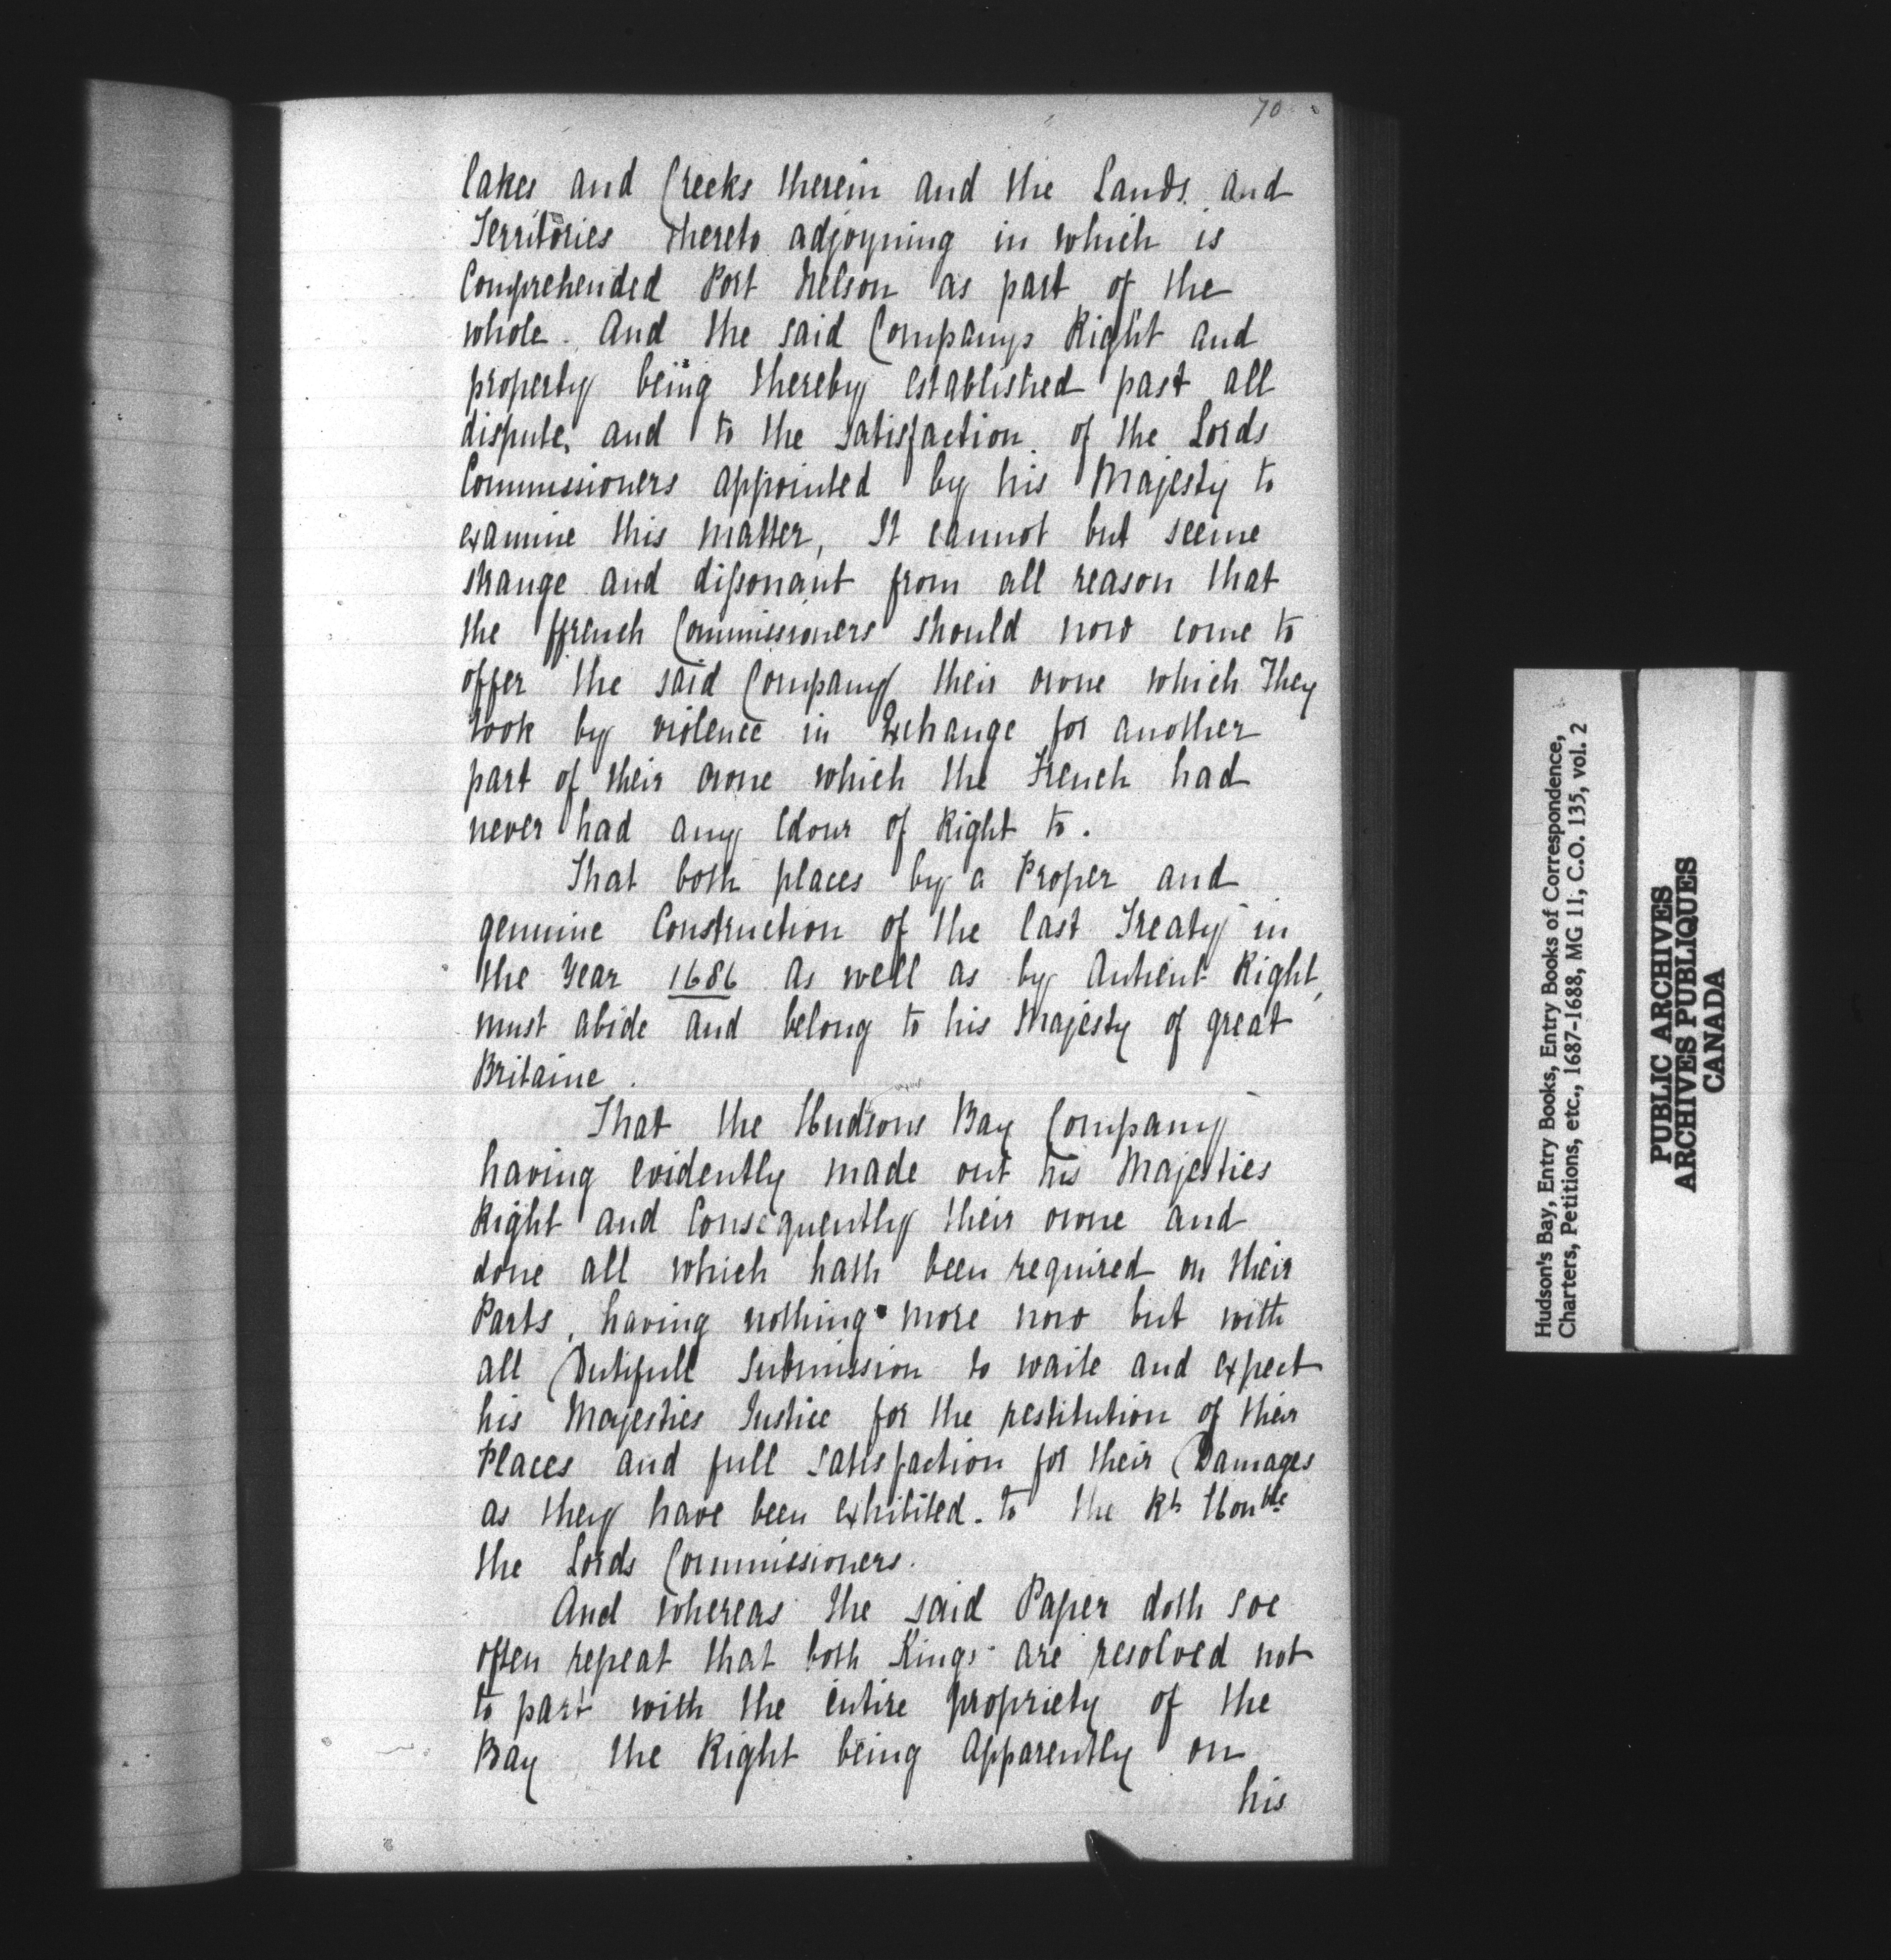 70
Lakes and Creeks therein and the Lands and
Territories thereto adjoyning in which is
Comprehended Port Nelson as part of the
whole. And the said Companys Right and
property being thereby established past all
dispute, and to the satisfaction of the Lords
Commissioners appointed by his Majesty to
examine this matter, It cannot but seeme
strange and dissonant from all reason that
the ffrench Commissioners should now come to
offer the said Company their owne which They
took by violence in Exchange for another
part of their owne which the French had
never had any Colour of Right to.
That both places by a Proper and
genuine Construction of the last Treaty in
the Year 1686 as well as by Antient Right,
must abide and belong to his Majesty of great
Britaine.
That the Hudsons Bay Company
having evidently made out his Majesties
Right and Consequently their owne and
done all which hath been required on their
Parts, having nothing more now but with
all Dutifull Submission to waite and expect
his Majesties Justice for the restitution of their
Places and full satisfaction for their Damages
as they have been exhibited to the Rt Honble
the Lords Commissioners.
And whereas the said Paper doth soe
often repeat that both Kings are resolved not
to part with the entire propriety of the
Bay the Right being apparently on
his
Hudson's Bay, Entry Books, Entry Books of Correspondence,
Charters, Petitions, etc., 1687-1688, MG 11, C.O. 135, vol. 2
PUBLIC ARCHIVES
ARCHIVES PUBLIQUES
CANADA